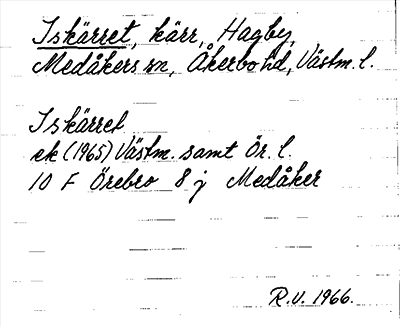 Iskärret, kärr, Hagby,
Medåkers sn, Åkerbo hd, Västm. l.
Iskärret
ek (1965) Västm. samt Ör. l.
10 F Örebro 8 j Medåker
R.V. 1966.